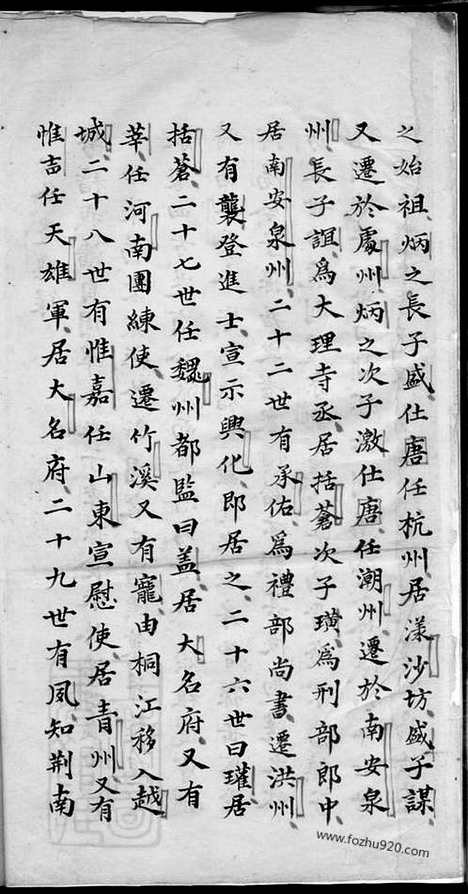 之始祖炳之長子盛仕唐任杭州居漾沙坊盛子謀
又遷於處州炳之次子激仕唐任潮州遷於南安泉
州長子誼為大理寺丞居括蒼次子璜為刑部郎中
居南安泉州二十二世有承佑為禮部尚書遷洪州
又有襲登進士宣示興化即居之二十六世曰瓘居
括蒼二十七世任魏州都監曰盖居大名府又有
莘任河南團練使遷竹溪又有寵由桐江移入越
城二十八世有惟嘉任山東宣慰使居青州又有
惟吉任天雄軍居大名府二十九世有夙知荆南
www.fozhu920.com